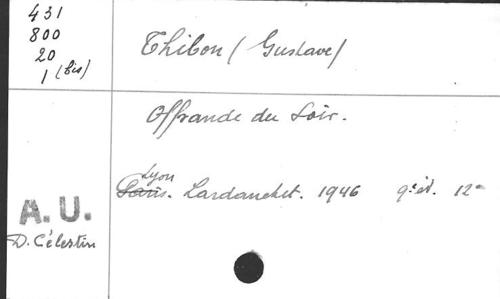 431
800
20
1 (bis)
Thibon (Gustave)
Offrande du Soir.
Lyon
Paris. Lardanchet. 1946 9e éd. 12°
A.U.
D. Célestin